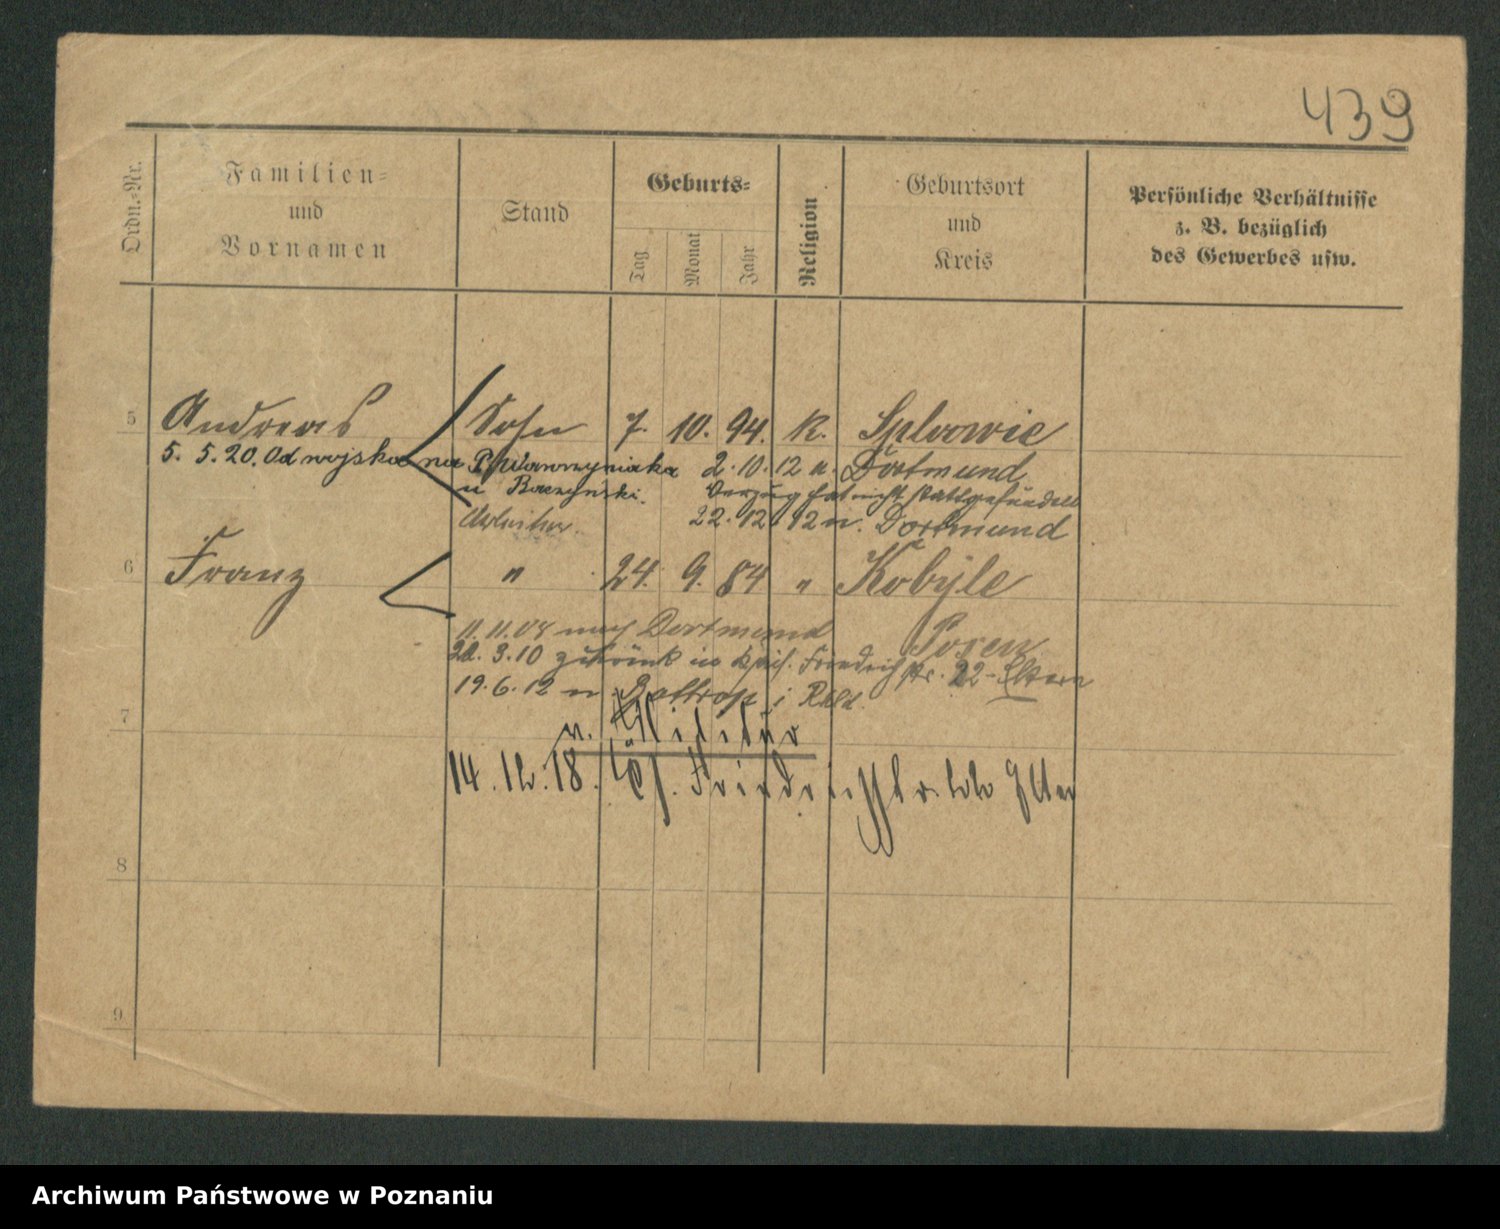 439
Ordn.-Nr.
Familien-
und
Vornamen
Stand
Geburts-
Tag
Monat
Jahr
Religion
Geburtsort
und
Kreis
Persönliche Verhältnisse
z. B. bezüglich
des Gewerbes usw.
5 Andreas Sohn 7. 10. 94. K. Splawie
5. 5. 20. Od wojska na P. Wawrzyniaka 2. 10. 12 n. Dortmund
u Baczyński. Verzug hat nicht stattgefunden
22. 12. 12 n. Dortmund
6 Franz " 24. 9. 84 " Kobyle
11. 11. 08 nach Dortmund Posen
20. 3. 10 zurück in Friedrichstr. 22 - Eltern
19. 6. 12 n Bottrop i
7
v. Militär
14. 12. 18. Friedrichstr. Eltern
8
9
Archiwum Państwowe w Poznaniu